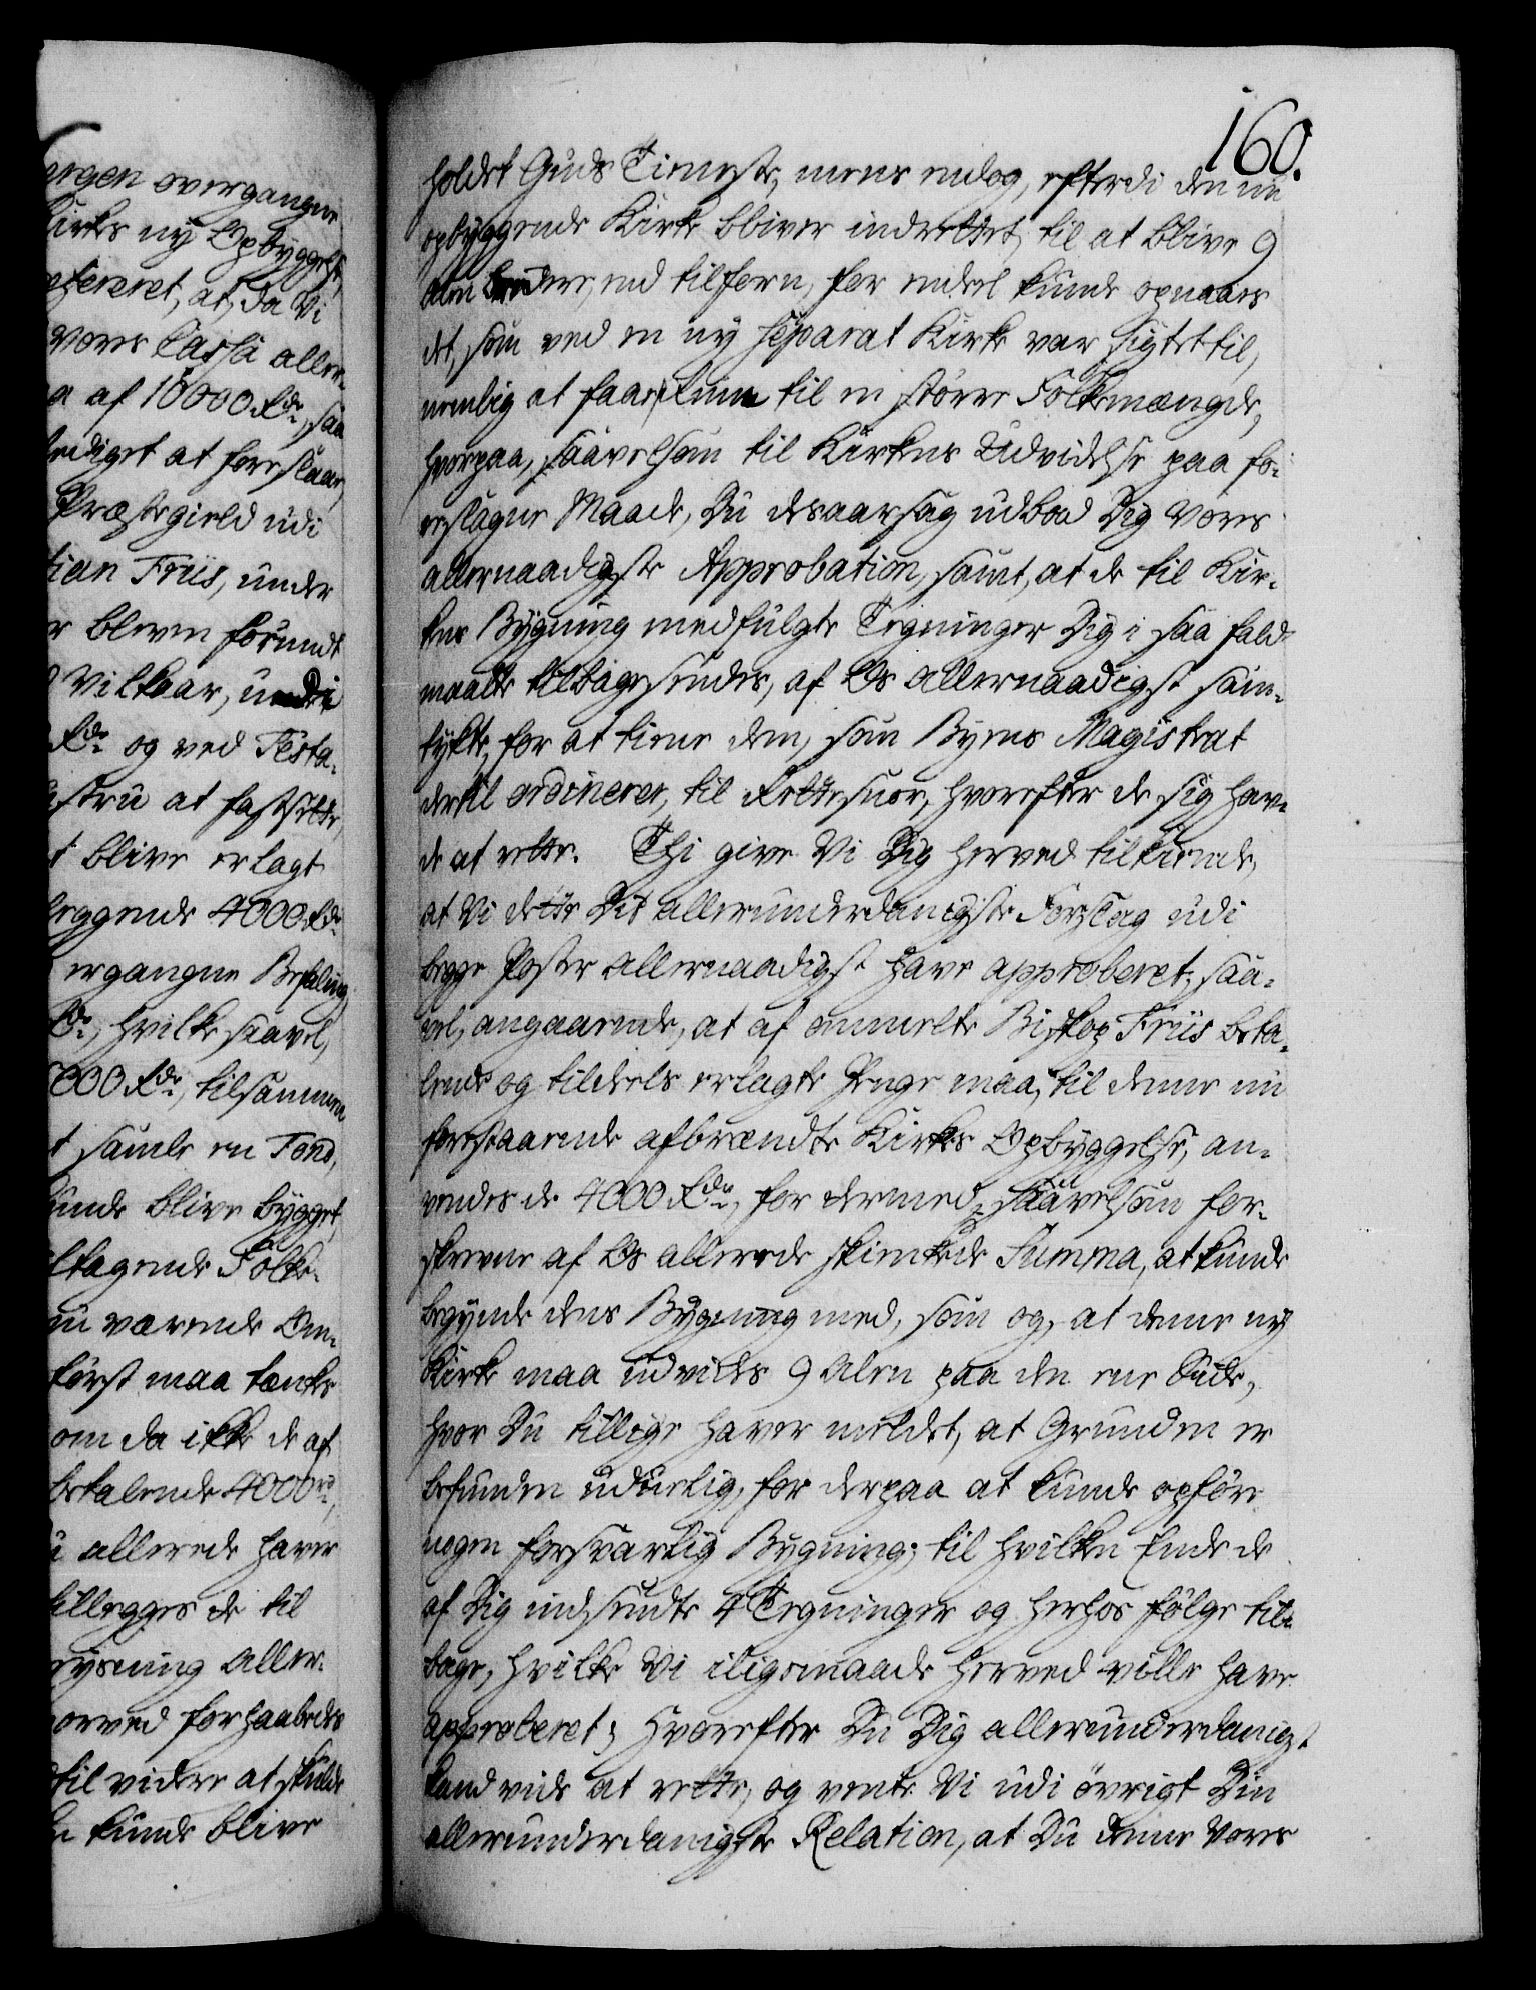 ergen overgangne
Kirkes ny Opbyggelse,
refereret, at, da Vi
vores Cassa aller-
a af 10000 Rdr, saa
lediget at foreslaae,
Præstegield udi
tian Friis, under
r bleven forundt
Vilkaar, undi
Rdr og ved Testa-
ustru at fastsette,
t blive erlagt
leggende 4000 Rdr
ergangne Befaling
Rdr, hvilke saavel,
000 Rdr, tilsammen
t samle en Fond,
unde blive bygget,
ltagende Folke-
nu værende Om-
først maa tænkes
om da ikke de af
betalende 4000 rdr,
u allerede haver
tillegges de til
rysning aller-
orved forhaabedes
til videre at skulde
kunde blive
160.
holdet Guds Tieneste, mens endog, efterdi den nu
opbyggende Kirke bliver indrettet til at blive 9
Alen bredere, end tilforn, for endeel kunde opnaaes
det, som ved en ny separat Kirke var sigtet til,
nemlig at faae Rum til en større Folkemængde,
hvorpaa, saavelsom til Kirkens Udvidelse paa fo-
reslagne Maade, Du desaarsag udbad Dig vores
allernaadigste Approbation, samt, at de til Kir-
kens Bygning medfulgte Tegninger Dig i saa fald
maatte tilbagesendes, af Os allernaadigst sam-
tykte, for at tiene dem, som Byens Magistrat
dertil ordinerer, til Rettesnor, hvorefter de sig hav-
de at rette. Thi give Vi Dig herved tilkiende,
at Vi dette Dit allerunderdanigste Forslag udi
begge Poster allernaadigst have approberet, saa-
vel, angaaende, at af ommelte Biskop Friis beta-
lende og tildeels erlagte Penge maa, til denne nu
forestaaende afbrændte Kirkes Opbyggelse, an-
vendes de 4000 Rdr, for dermed, saavelsom for-
skrevne af Os allerede skienkede Summa, at kunde
begynde dens Bygning med, som og, at denne ny
Kirke maa udvides 9 Alen paa den ene Side,
hvor Du tillige haver meldet, at Grunden er
befunden uduelig, for derpaa at kunde opføre
nogen forsvarlig Bygning; til hvilken Ende de
af Dig indsendte 4 Tegninger og herhos følge til-
bage, hvilke Vi iligemaade herved ville have
approberet; Hvorefter Du Dig allerunderdanigst
kand vide at rette, og vente Vi udi øvrigt Din
allerunderdanigste Relation, at Du denne Vores